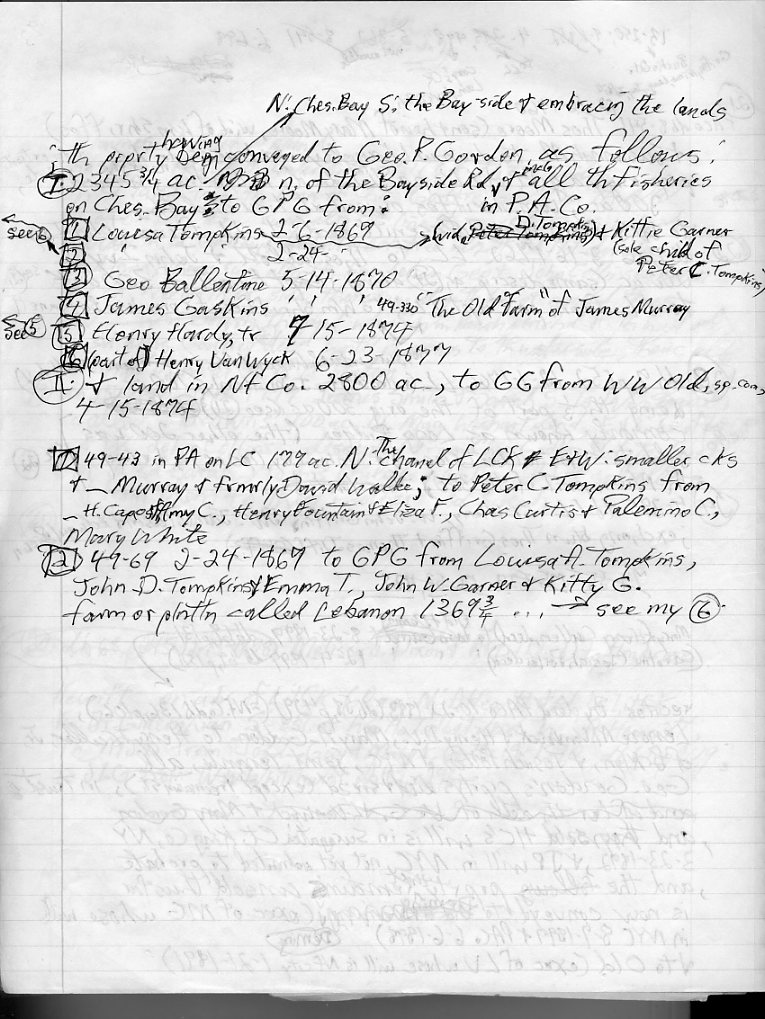 N: Ches. Bay S: the Bay-side & embracing the lands
; th prprty having been conveyed to Geo. P. Gordon, as follows:
I: 2345 3/4 ac. n. of the Bayside Rd, & also all th fisheries
on Ches. Bay to GPG from: in P.A. Co.
see 6 1 Louisa Tompkins 2-6-1869 (wid. Peter Tompkins) D. Tompkins & Kittie Garner
2 " " 2-24- (sole child of
Peter C. Tompkins)
3 Geo Ballentine 5-14-1870
4 James Gaskins " " " 49-330 "The Old Farm" of James Murray
see 5 5 Henry Hardy, tr 7-15-1874
6 (part of) Henry VanWyck 6-23-1877
II: & land in Nf Co. 2800 ac., to GG from WW Old, sp. com,
4-15-1874
1 49-43 in PA on LC 179 ac. N: The chanel of LCK E & W: smaller cks
& _ Murray & frmrly David Walke; to Peter C. Tompkins from
_ H. Capos & Amy C., Henry Fountain & Eliza F., Chas Curtis & Palemino C.,
Mary White
2 49-69 2-24-1869 to GPG from Louisa A. Tompkins,
John D. Tompkins & Emma T., John W. Garner & Kitty G.
farm or plnttn called Lebanon 1369 3/4 ... → see my 6